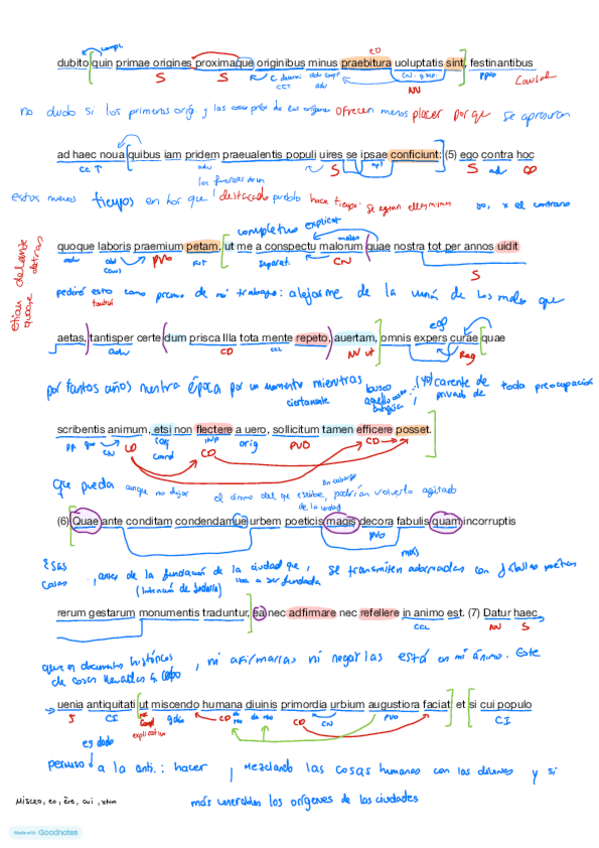 compl.
dubito quin primae origines proximaque originibus minus praebitura uoluptatis sint, festinantibus
S S CCT adv NN Causal
no dudo si los primeros orig y las cosas próx de los orígenes ofrecen menos placer porque se apresuran
ad haec noua quibus iam pridem praeualentis populi uires se ipsae conficiunt: (5) ego contra hoc
CC adv S S adv CD
las fuerzas de un
estos nuevos tiempos en los que destacado pueblo hace tiempo se agotan ellas mismas yo, x el contrario
completiva explicat
quoque laboris praemium petam, ut me a conspectu malorum quae nostra tot per annos uidit
adv PVO Fut separat. CN S
pediré esto como premio de mi trabajo: alejarme de la visión de los males que
aetas, tantisper certe dum prisca illa tota mente repeto, auertam, omnis expers curae quae
adv CD CCL NV ut Reg
por tantos años nuestra época por un momento mientras busco (yo) carente de toda preocupación
ciertamente privado de
scribentis animum, etsi non flectere a uero, sollicitum tamen efficere posset.
CN CD CD orig PVO CD
que pueda aunque no dejar el ánimo del que escribe, podrían volverlo agitado
(6) Quae ante conditam condendamue urbem poeticis magis decora fabulis quam incorruptis
PVO más
Esas cosas, antes de la fundación de la ciudad que, se transmiten adornadas con fábulas poéticas
(intención de fundarla) iba a ser fundada
rerum gestarum monumentis traduntur, ea nec adfirmare nec refellere in animo est. (7) Datur haec
CCL NN S
que en documentos históricos, ni afirmarlas ni negarlas está en mi ánimo. Este
de cosas llevadas a cabo
uenia antiquitati ut miscendo humana diuinis primordia urbium augustiora faciat et si cui populo
S CI explicativa CD CD CN PVO CI
es dado
permiso a la anti.: hacer, mezclando las cosas humanas con las divinas y si
más venerables los orígenes de las ciudades
Misceo, es, ēre, cui, xtum
Made with Goodnotes